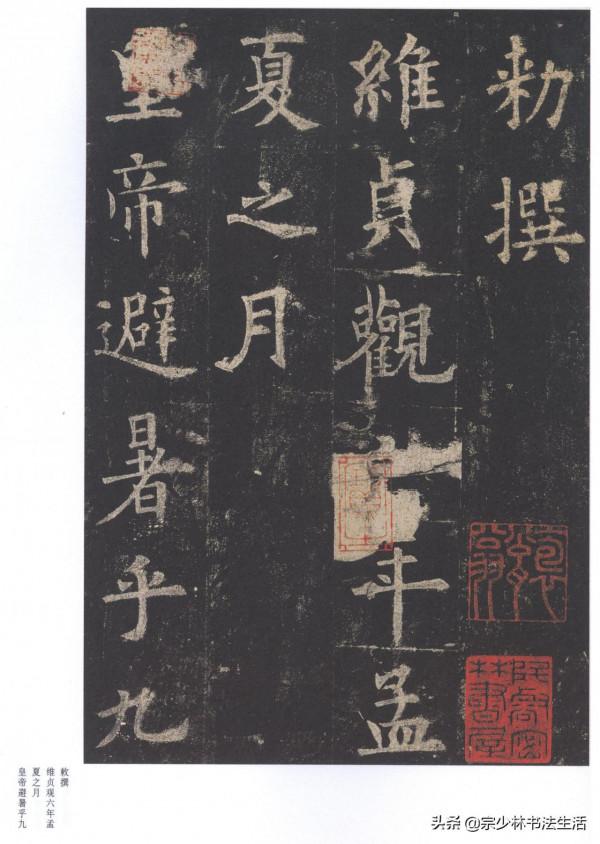 勅撰
維貞觀六年孟
夏之月
皇帝避暑乎九
敕撰
维贞观六年孟
夏之月
皇帝避暑乎九
头条 @宗少林书法生活